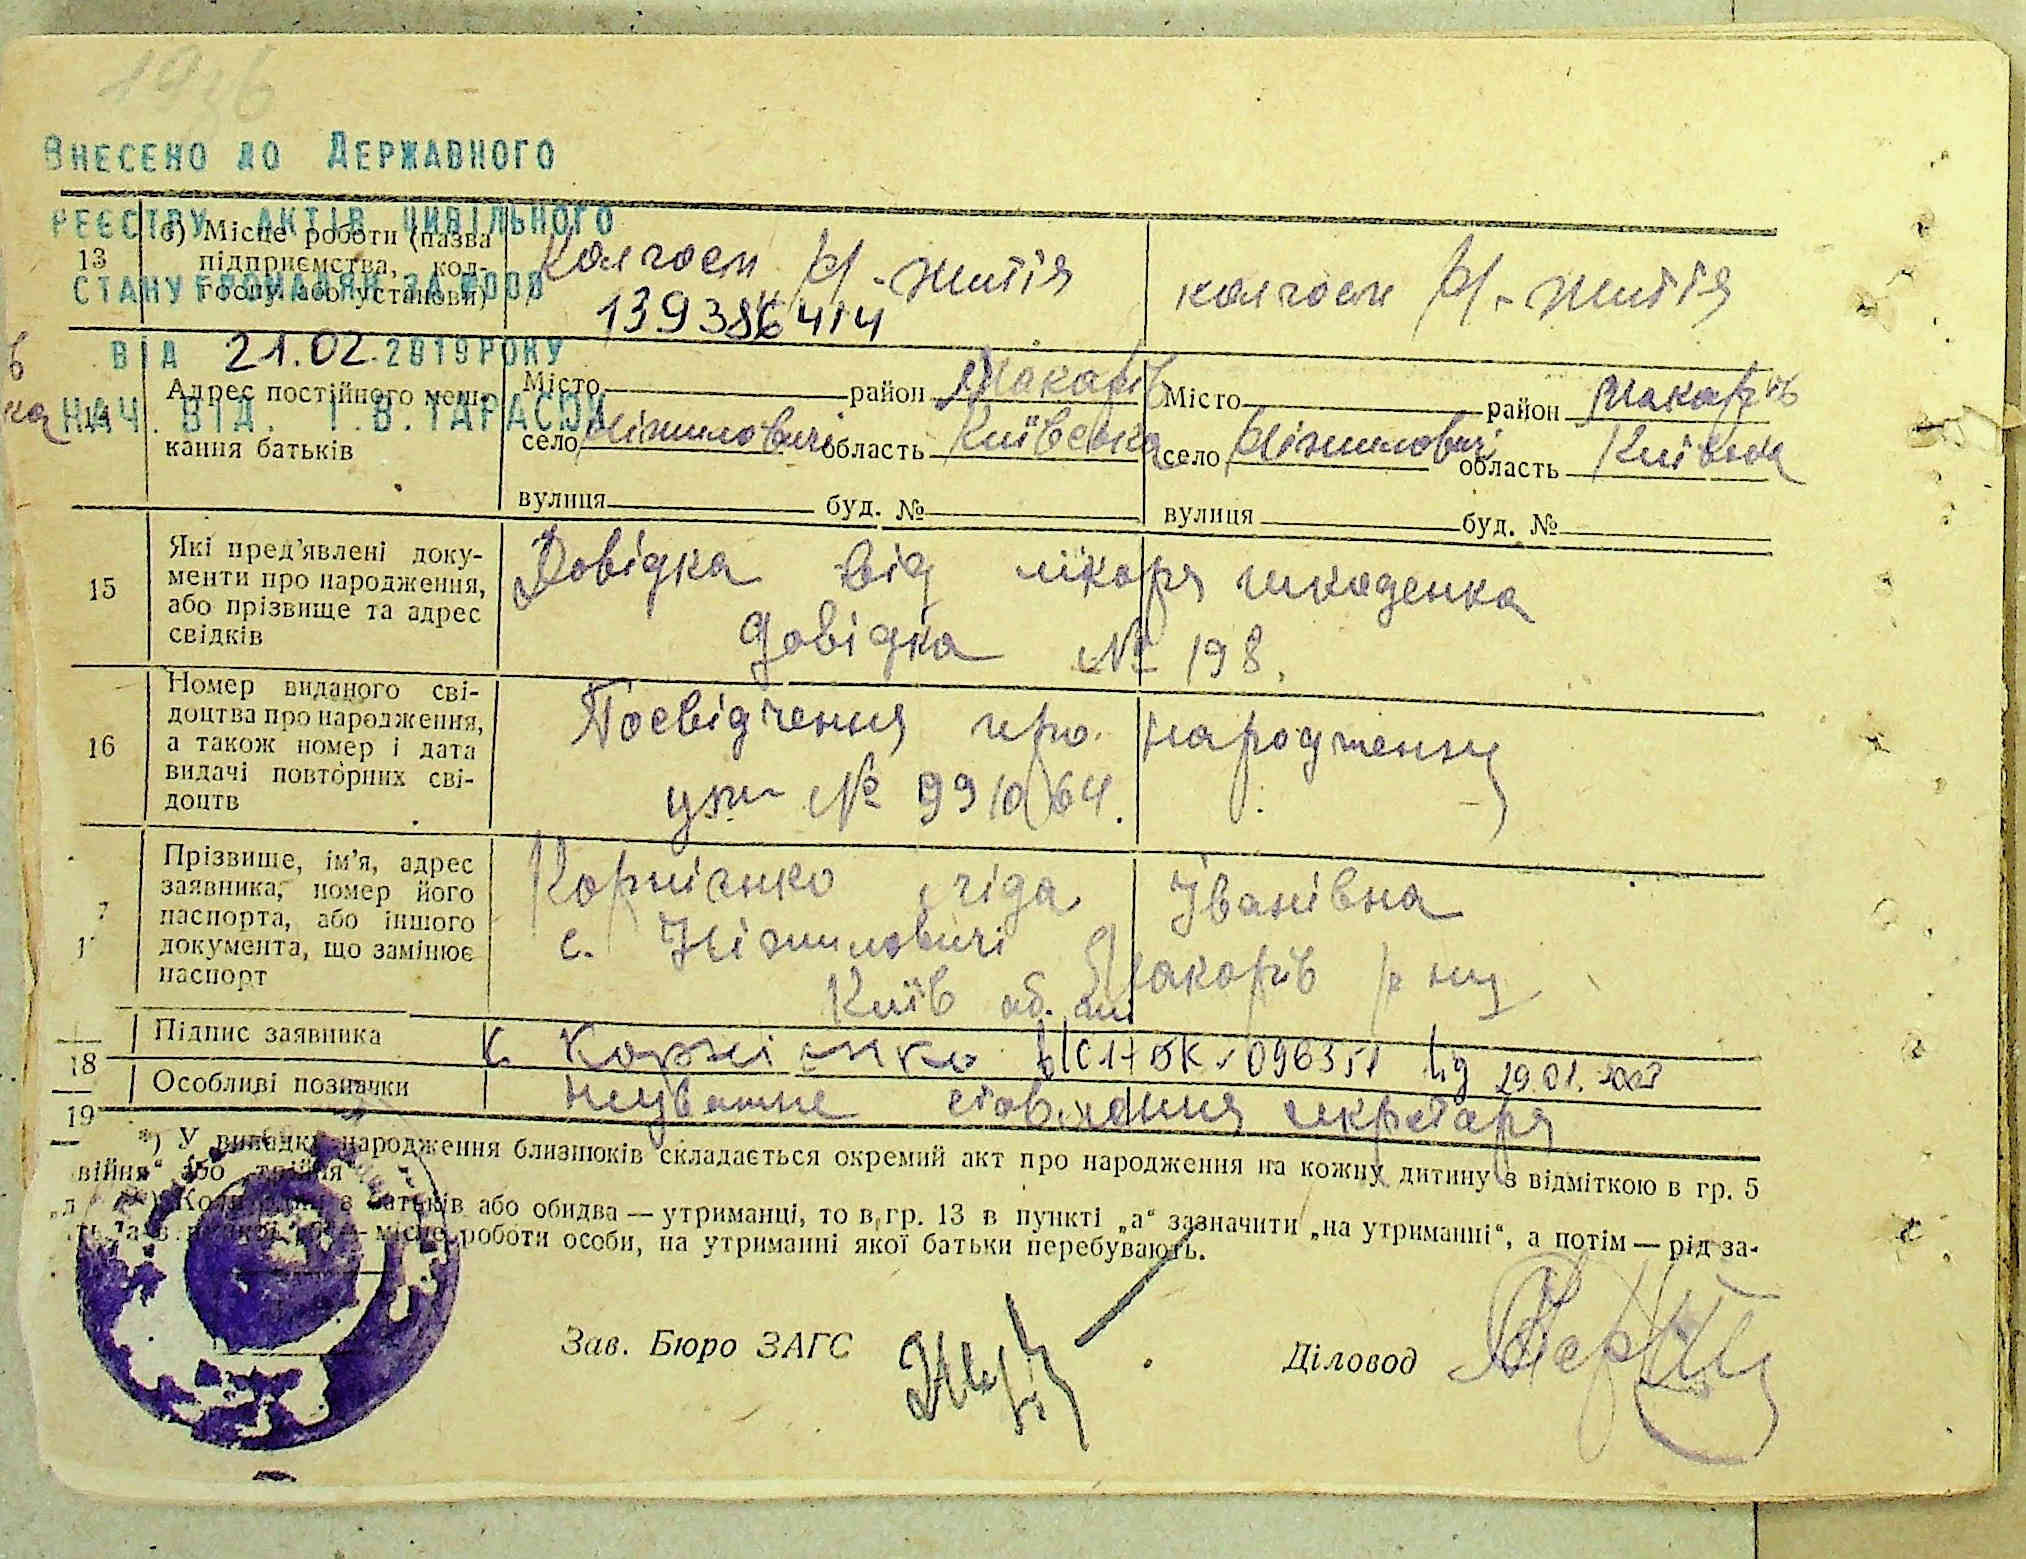 1936
Внесено до Державного
реєстру актів цивільного
стану громадян за №000
від 21.02.2019 року
нач. від. І.В. Тарасюк
13
б) Місце роботи (назва
підприємства, кол-
госпу або установи)
Колгосп Н-життя
139386414
колгосп Н-життя
14
Адрес постійного меш-
кання батьків
Місто район Макарів
село Ніжиловичі область Київська
вулиця буд. №
Місто район Макарів
село Ніжиловичі область Київська
вулиця буд. №
15
Які пред'явлені доку-
менти про народження,
або прізвище та адрес
свідків
Довідка від лікаря
довідка № 198.
16
Номер виданого сві-
доцтва про народження,
а також номер і дата
видачі повторних сві-
доцтв
Посвідчення про народження
№ 991064.
Прізвище, ім'я, адрес
заявника, номер його
паспорта, або іншого
документа, що замінює
паспорт
Корнієнко Ліда Іванівна
с. Ніжиловичі Макарів р-ну
Київ об.
18
Підпис заявника
Корнієнко 096351 29.01.
19
Особливі позначки
неуважне ставлення секретаря
*) У випадку народження близнюків складається окремий акт про народження на кожну дитину з відміткою в гр. 5
„двійня“ або „трійня“
**) Коли один з батьків або обидва — утриманці, то в гр. 13 в пункті „а“ зазначити „на утриманні“, а потім — рід за-
місце роботи особи, на утриманні якої батьки перебувають.
Зав. Бюро ЗАГС
Діловод